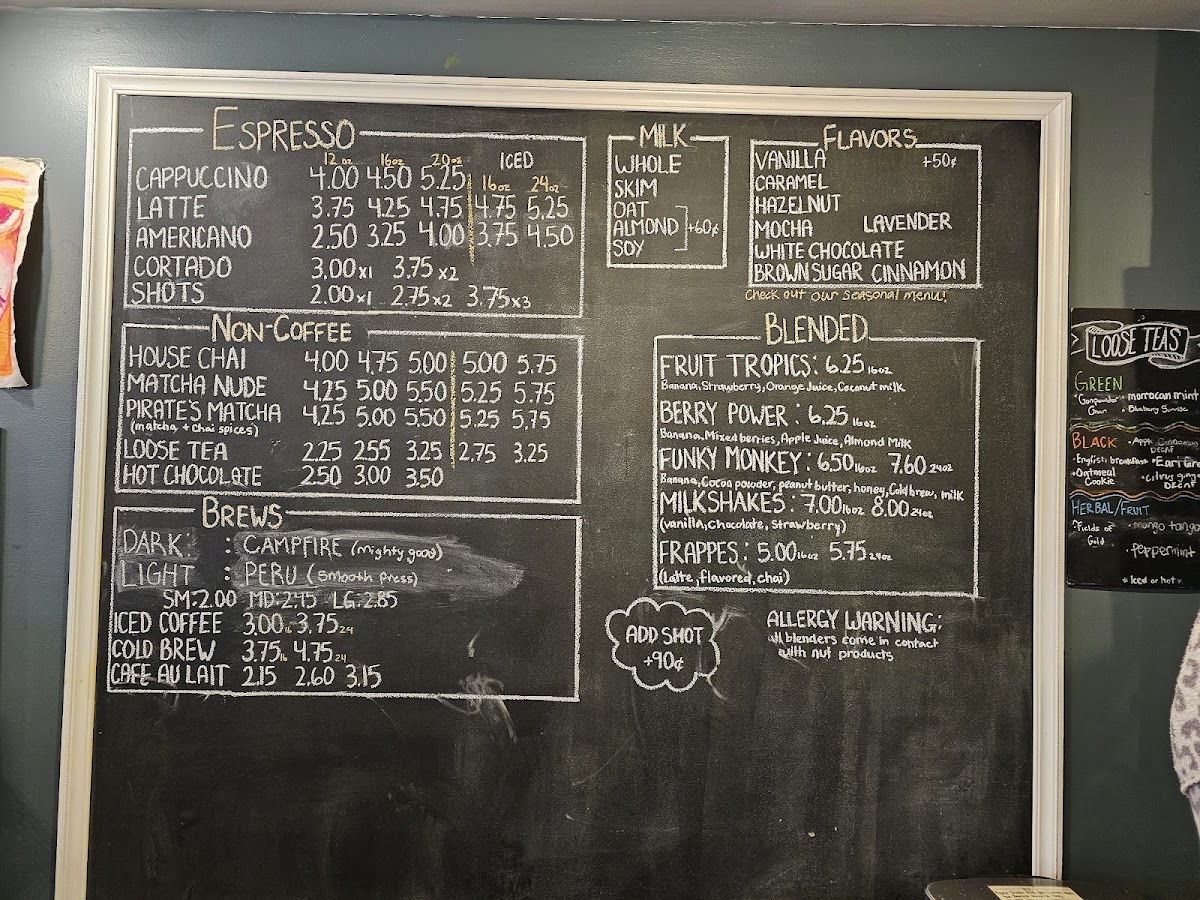 ESPRESSO
12 oz 16oz 20oz ICED
CAPPUCCINO 4.00 4.50 5.25 16oz 24oz
LATTE 3.75 4.25 4.75 4.75 5.25
AMERICANO 2.50 3.25 4.00 3.75 4.50
CORTADO 3.00x1 3.75x2
SHOTS 2.00x1 2.75x2 3.75x3
NON-COFFEE
HOUSE CHAI 4.00 4.75 5.00 5.00 5.75
MATCHA NUDE 4.25 5.00 5.50 5.25 5.75
PIRATE'S MATCHA 4.25 5.00 5.50 5.25 5.75
(matcha + chai spices)
LOOSE TEA 2.25 2.55 3.25 2.75 3.25
HOT CHOCOLATE 2.50 3.00 3.50
BREWS
DARK: : CAMPFIRE (mighty good)
LIGHT : PERU (smooth press)
SM:2.00 MD:2.45 LG:2.85
ICED COFFEE 3.00 16 3.75 24
COLD BREW 3.75 16 4.75 24
CAFE AU LAIT 2.15 2.60 3.15
MILK
WHOLE
SKIM
OAT
ALMOND +60¢
SOY
FLAVORS
VANILLA +50¢
CARAMEL
HAZELNUT
MOCHA LAVENDER
WHITE CHOCOLATE
BROWN SUGAR CINNAMON
Check out our seasonal menu!
BLENDED
FRUIT TROPICS: 6.25 16oz
Banana, Strawberry, Orange Juice, Coconut milk
BERRY POWER : 6.25 16oz
Banana, Mixed berries, Apple Juice, Almond Milk
FUNKY MONKEY: 6.50 16oz 7.60 24oz
Banana, Cocoa powder, peanut butter, honey, Cold brew, milk
MILKSHAKES: 7.00 16oz 8.00 24oz
(vanilla, chocolate, strawberry)
FRAPPES: 5.00 16oz 5.75 24oz
(Latte, flavored, chai)
ADD SHOT
+90¢
ALLERGY WARNING:
all blenders come in contact
with nut products
LOOSE TEAS
GREEN
• Gunpowder • morrocan mint
Green • Blueberry Sunrise
BLACK • Apple Cinnamon
DECAF
• English breakfast • Earl Gre
• Oatmeal • citrus ging
Cookie DECAF
HERBAL/FRUIT
• Fields of • mango tango
Gold
• Peppermint
* Iced or hot *